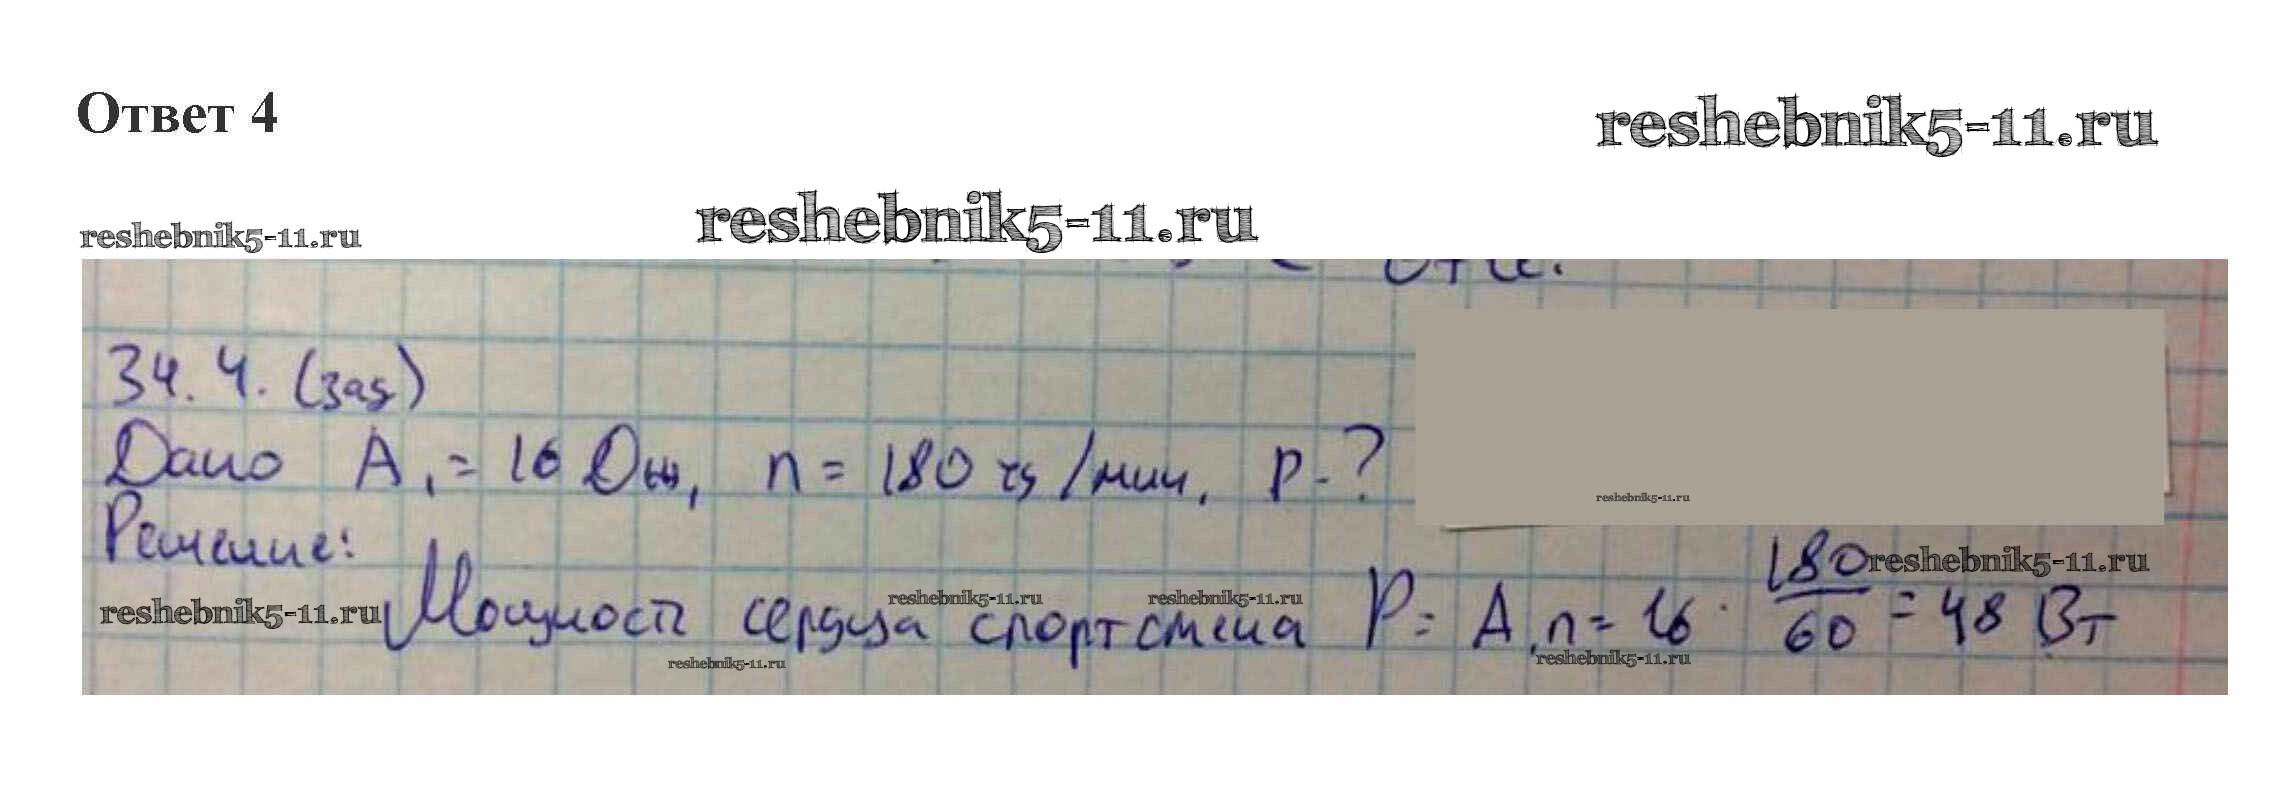 Ответ 4
reshebnik5-11.ru
reshebnik5-11.ru
reshebnik5-11.ru
34.4. (зад)
Дано A₁ = 16 Дж, n = 180 уд/мин, P - ?
reshebnik5-11.ru
Решение:
reshebnik5-11.ru
reshebnik5-11.ru
reshebnik5-11.ru
reshebnik5-11.ru
Мощность сердца спортсмена P = A₁n = 16 · 180/60 = 48 Вт
reshebnik5-11.ru
reshebnik5-11.ru